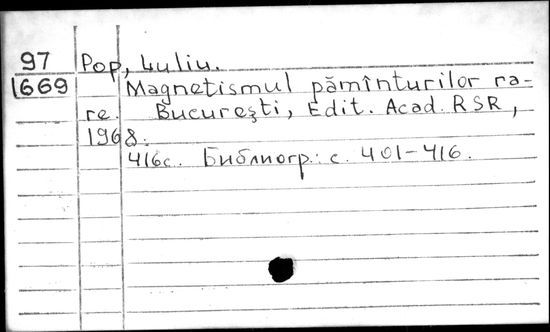 97
1669
Pop, Iuliu.
Magnetismul pămînturilor ra-
re. Bucureşti, Edit. Acad. RSR,
1968.
416c. Библиогр.: с. 401-416.